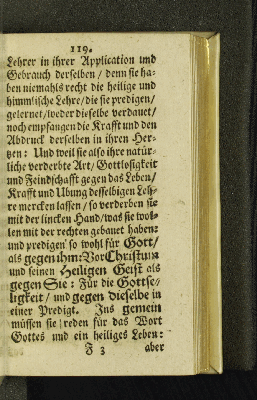 119.
Lehrer in ihrer Application und
Gebrauch derselben / denn sie ha-
ben niemahls recht die heilige und
himmlische Lehre / die sie predigen /
gelernet / weder dieselbe verdauet /
noch empfangen die Krafft und den
Abdruck derselben in ihren Her-
tzen: Und weil sie also ihre natür-
liche verderbte Art / Gottlosigkeit
und Feindschafft gegen das Leben /
Krafft und Ubung desselbigen Leh-
re mercken lassen / so verderben sie
mit der lincken Hand / was sie wol-
len mit der rechten gebauet haben:
und predigen so wohl für Gott /
als gegen ihm: Vor Christum
und seinen Heiligen Geist als
gegen Sie: Für die Gottse-
ligkeit / und gegen dieselbe in
einer Predigt. Ins gemein
müssen sie reden für das Wort
Gottes und ein heiliges Leben:
J 3 aber